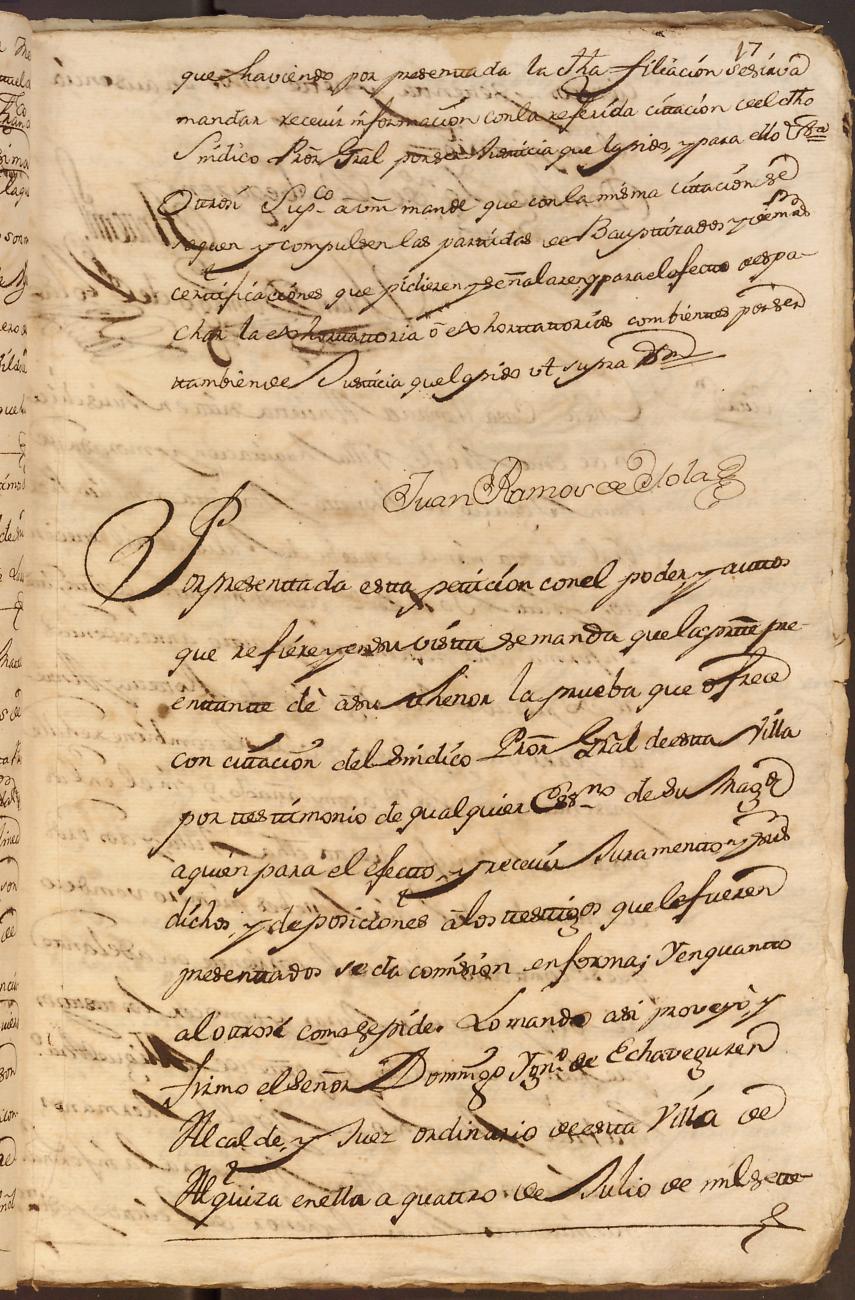 17
que haviendo por presentada la dha filiación se sirva
mandar recevir informacion con la referida citación de el dho
Sindico Pror Gral por ser Justicia que lg pido, y para ello &ra
Ottrosi Supco a vm mande que con la misma cittación se
saquen y compulsen las parttidas de Bapttizados y demas
certtificaciones que pidieren y señalaren, y para el efectto despa-
char la exhorttattoria ò exhorttattorias combientes por ser
ttambien de Justicia que lg pido ut supra
Juan Ramos de Ysola
Por presenttada estta petticion con el poder, y auttos
que refiere, y en su vistta se manda que la partte pre-
enttantte dè a su thenor la prueba que ofrece
con cittacion del Sindico Pror Gral de estta Villa
por ttesttimonio de qualquier Essno de su Magd
a quien para el efectto, y recevir Juramentto, y sus
dichos, y deposiciones à los ttesttigos que le fueren
presenttados se da comision en forma; Y en quantto
al ottrosi como se pide. Lo mandò asi proveyò, y
firmo el Señor Domingo Ygno de Echaveguren
Alcalde, y Juez ordinario de estta Villa de
Alquiza en ella a quattro de Julio de mil sette